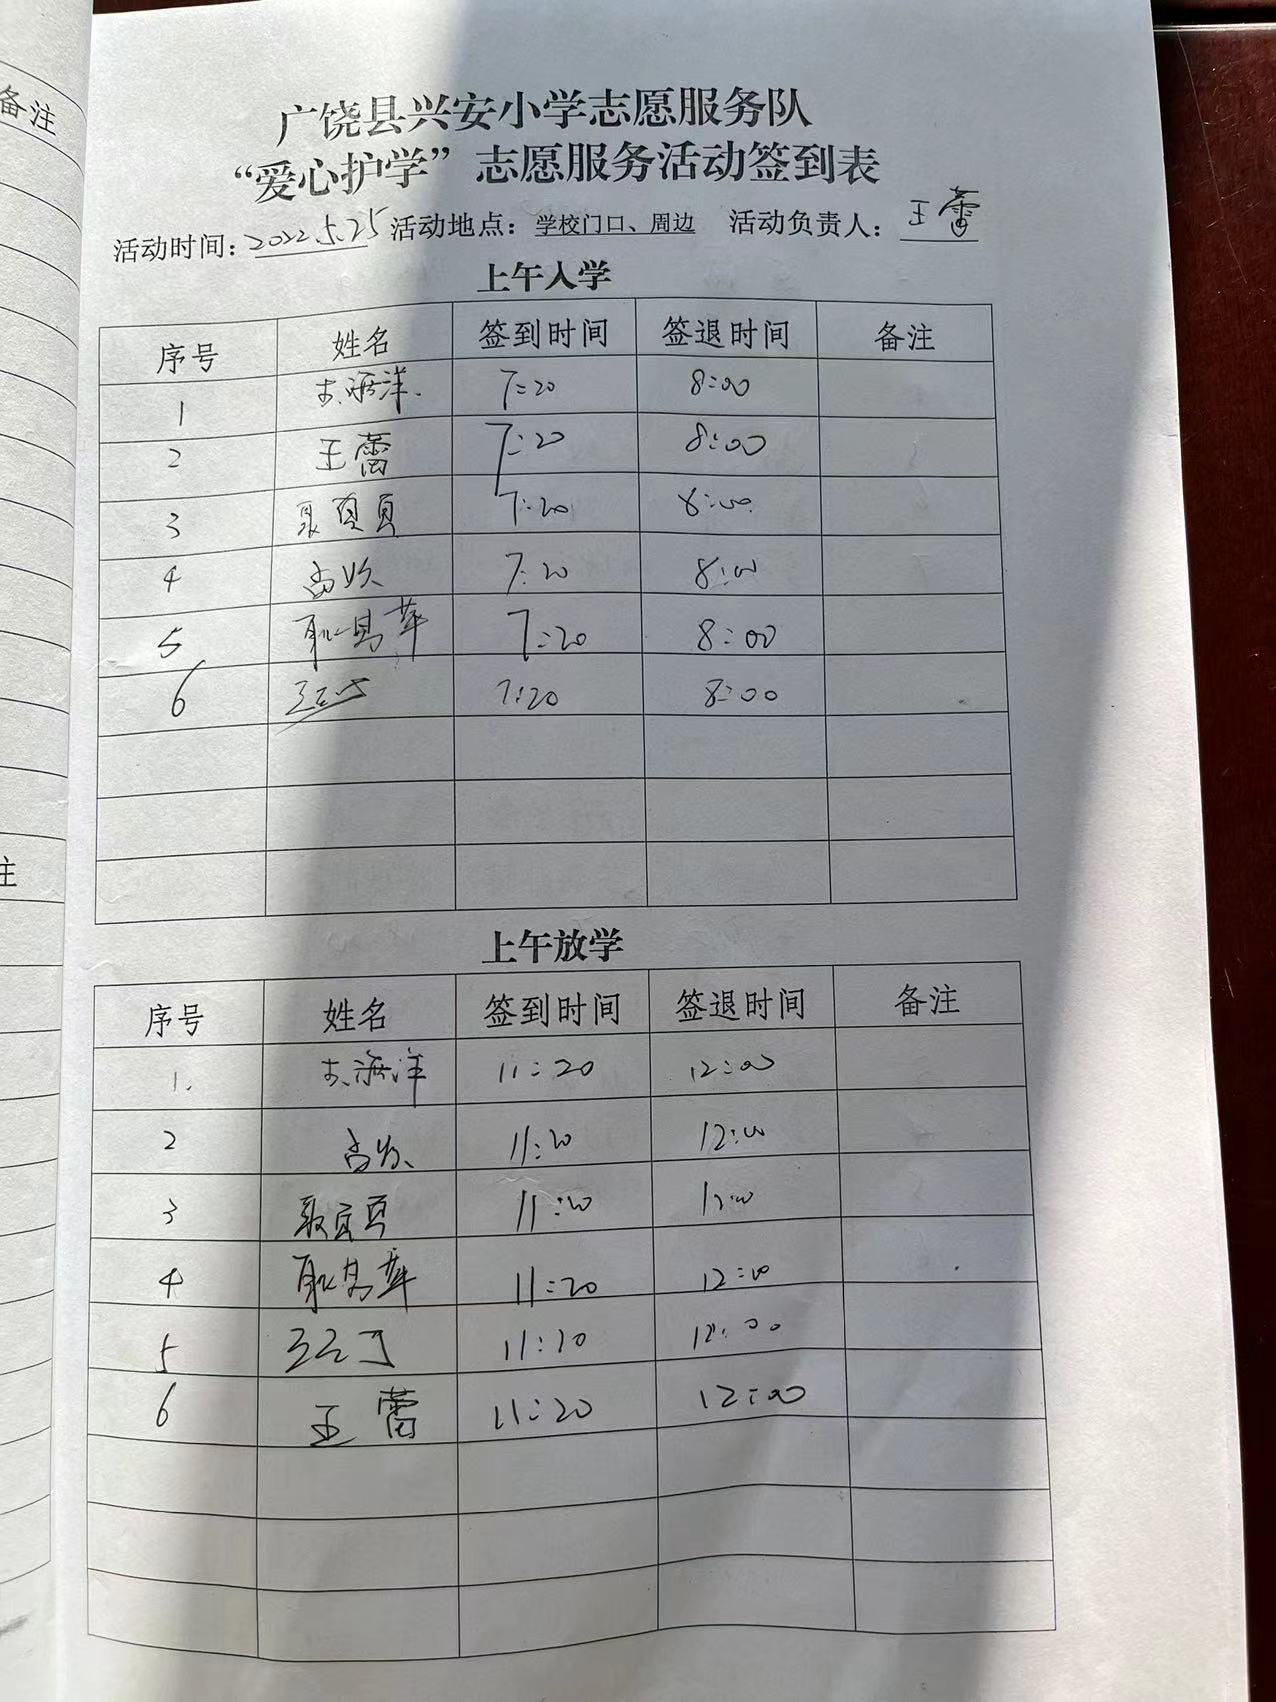 备注
注
广饶县兴安小学志愿服务队
“爱心护学”志愿服务活动签到表
活动时间：2022.5.25 活动地点：学校门口、周边 活动负责人：王蕾
上午入学
序号 姓名 签到时间 签退时间 备注
1 海洋 7:20 8:00
2 王蕾 7:20 8:00
3 7:20 8:00
4 7:20 8:00
5 7:20 8:00
6 7:20 8:00
上午放学
序号 姓名 签到时间 签退时间 备注
1. 海洋 11:20 12:00
2 11:20 12:00
3 11:20 12:00
4 11:20 12:00
5 11:20 12:00
6 王蕾 11:20 12:00